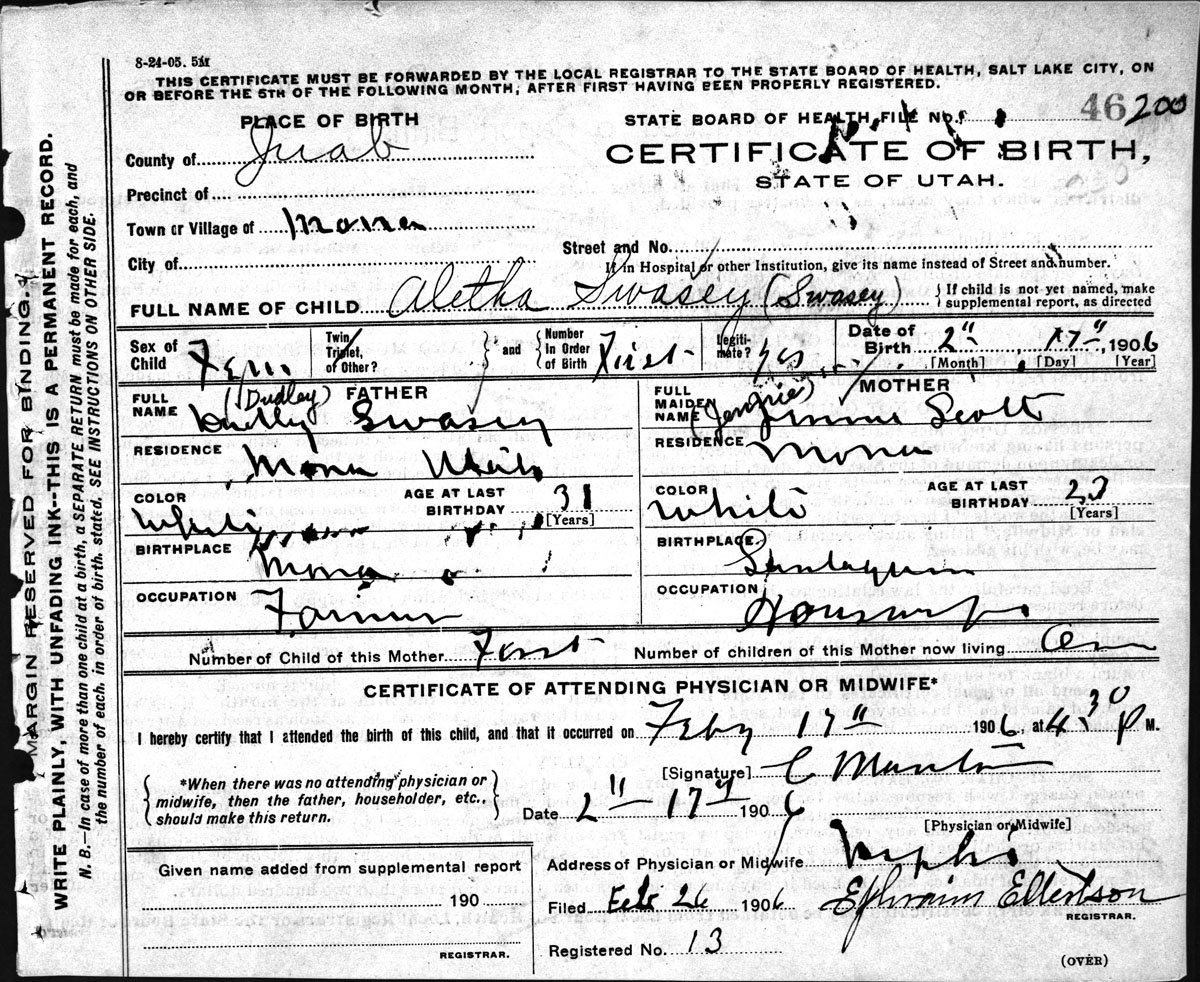 8-24-05. 5M
THIS CERTIFICATE MUST BE FORWARDED BY THE LOCAL REGISTRAR TO THE STATE BOARD OF HEALTH, SALT LAKE CITY, ON
OR BEFORE THE 5TH OF THE FOLLOWING MONTH, AFTER FIRST HAVING BEEN PROPERLY REGISTERED.
MARGIN RESERVED FOR BINDING.
WRITE PLAINLY, WITH UNFADING INK--THIS IS A PERMANENT RECORD.
N. B.--In case of more than one child at a birth, a SEPARATE RETURN must be made for each, and
the number of each, in order of birth, stated. SEE INSTRUCTIONS ON OTHER SIDE.
PLACE OF BIRTH
County of Juab
Precinct of
Town or Village of Mona
City of
STATE BOARD OF HEALTH FILE No. 46 200
CERTIFICATE OF BIRTH,
STATE OF UTAH.
Street and No.
If in Hospital or other Institution, give its name instead of Street and number.
FULL NAME OF CHILD Aletha Swasey (Swasey) { If child is not yet named, make
supplemental report, as directed
Sex of Child Fem. Twin, Triplet, of Other? } and { Number In Order of Birth First Legitimate? yes Date of Birth 2" 17", 1906
[Month] [Day] [Year]
FATHER
FULL NAME (Dudley) Dudley Swasey
RESIDENCE Mona Utah
COLOR White AGE AT LAST BIRTHDAY 31 [Years]
BIRTHPLACE Mona
OCCUPATION Farmer
MOTHER
FULL MAIDEN NAME (Jennie) Jennie Scott
RESIDENCE Mona
COLOR White AGE AT LAST BIRTHDAY [Years]
BIRTHPLACE Santaquin
OCCUPATION Housewife
Number of Child of this Mother First Number of children of this Mother now living One
CERTIFICATE OF ATTENDING PHYSICIAN OR MIDWIFE*
I hereby certify that I attended the birth of this child, and that it occurred on Feby 17" 1906, at 4.30 P M.
*When there was no attending physician or
midwife, then the father, householder, etc.,
should make this return.
[Signature] C
Date 2" 17" 1906
[Physician or Midwife]
Address of Physician or Midwife Nephi
Given name added from supplemental report
190
REGISTRAR.
Filed Feb 26 1906 Ephraim Ellertson
REGISTRAR.
Registered No. 13
(OVER)